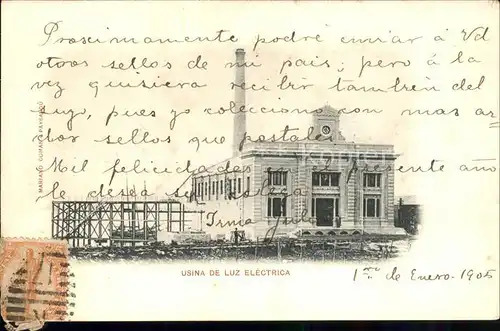 Proscimamente podré enviar á Vd
otros sellos de mi pais; pero á la
vez quisiera recibir tambien del
suyo, pues yo colecciono con mas ar-
dor sellos que postales.
Mil felicidades presente año
le desea su colega
Irma
MARIANO CURANO-PAYSANDÚ
USINA DE LUZ ELÉCTRICA
1ro de Enero-1905